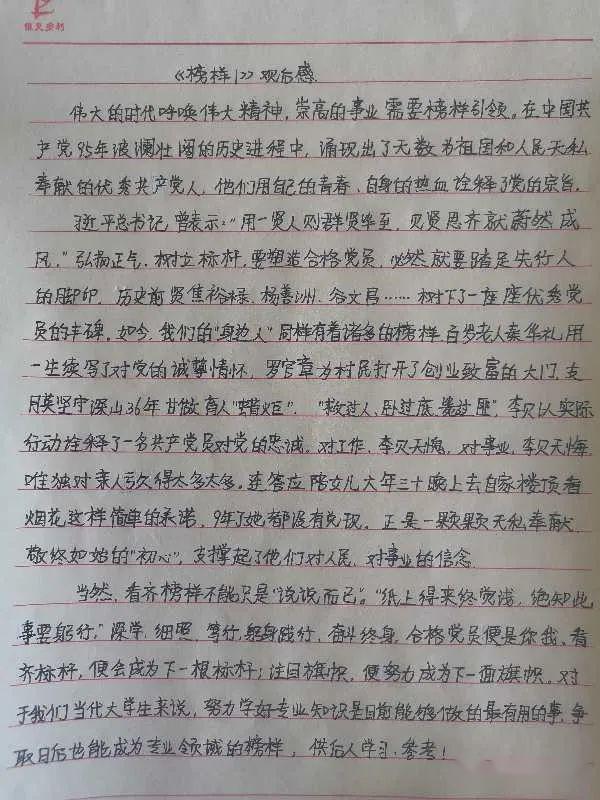 《榜样1》观后感
伟大的时代呼唤伟大精神,崇高的事业需要榜样引领。在中国共
产党95年波澜壮阔的历史进程中,涌现出了无数为祖国和人民无私
奉献的优秀共产党人,他们用自己的青春、自身的热血诠释了党的宗旨。
习近平总书记曾表示:“用一贤人则群贤毕至,见贤思齐就蔚然成
风。”弘扬正气、树立标杆,要塑造合格党员,必然就要踏足先行人
的脚印,历史前贤焦裕禄、杨善洲、谷文昌……树下了一座座优秀党
员的丰碑。如今,我们的“身边人”同样有着诸多的榜样,百岁老人秦华礼用
一生续写了对党的诚挚情怀,罗官章为村民打开了创业致富的大门,支
月英坚守深山36年甘做育人“蜡炬”。“救过人、卧过底、毙过匪”,李贝以实际
行动诠释了一名共产党员对党的忠诚。对工作,李贝无愧,对事业,李贝无悔,
唯独对亲人亏欠得太多太多。连答应陪女儿大年三十晚上去自家楼顶看
烟花这样简单的承诺,9年了她都没有兑现。正是一颗颗无私奉献、
敬终如始的“初心”,支撑起了他们对人民、对事业的信念。
当然,看齐榜样不能只是“说说而已”。“纸上得来终觉浅,绝知此
事要躬行。”深学、细照、笃行,躬身践行,奋斗终身,合格党员便是你我、看
齐标杆,便会成为下一根标杆;注目旗帜,便努力成为下一面旗帜。对
于我们当代大学生来说,努力学好专业知识是目前能够做的最有用的事,争
取日后也能成为专业领域的榜样,供后人学习、参考!